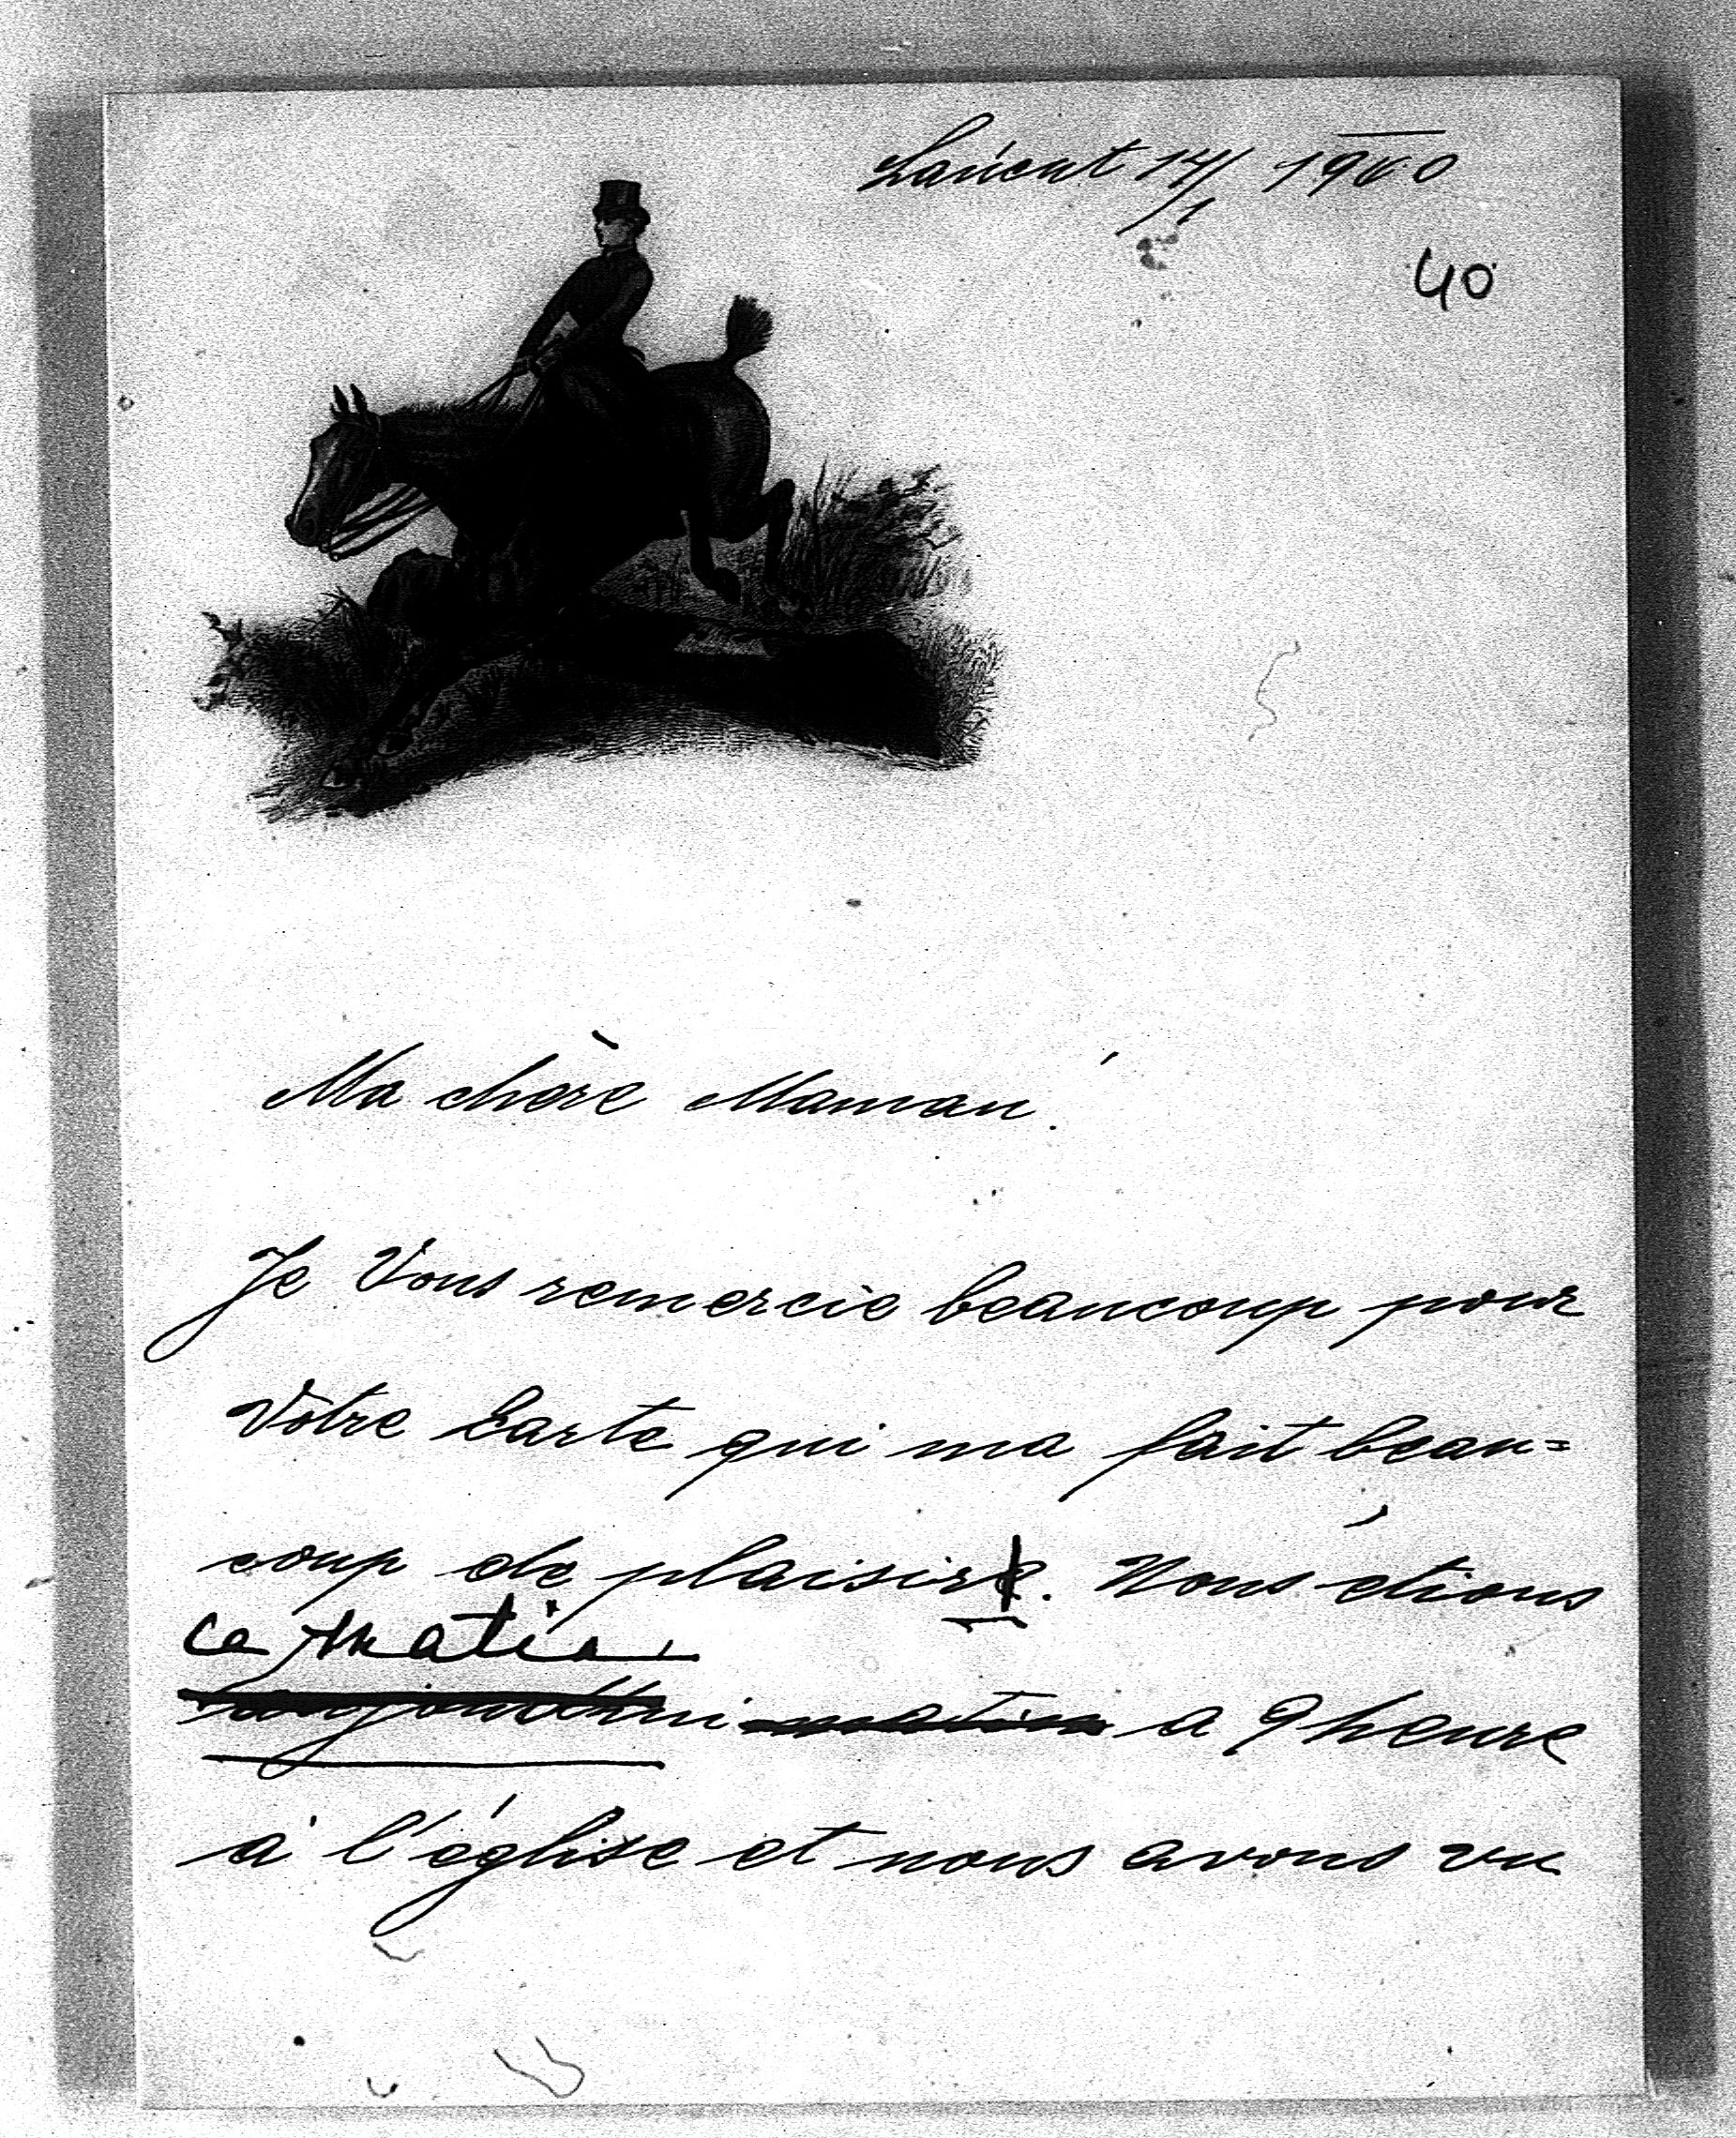 Lańcut 14/1 1900
40
Ma chère Maman!
Je Vous remercie beaucoup pour
Vòtre Carte qui ma fait beau=
coup de plaisire. Nous étions
ce matin
aujourd'hui matin a 9 heure
à l'église et nous avons vu